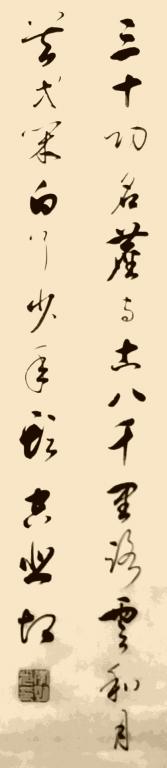 三十功名塵与土八千里路雲和月
莫等闲白了少年頭空悲切